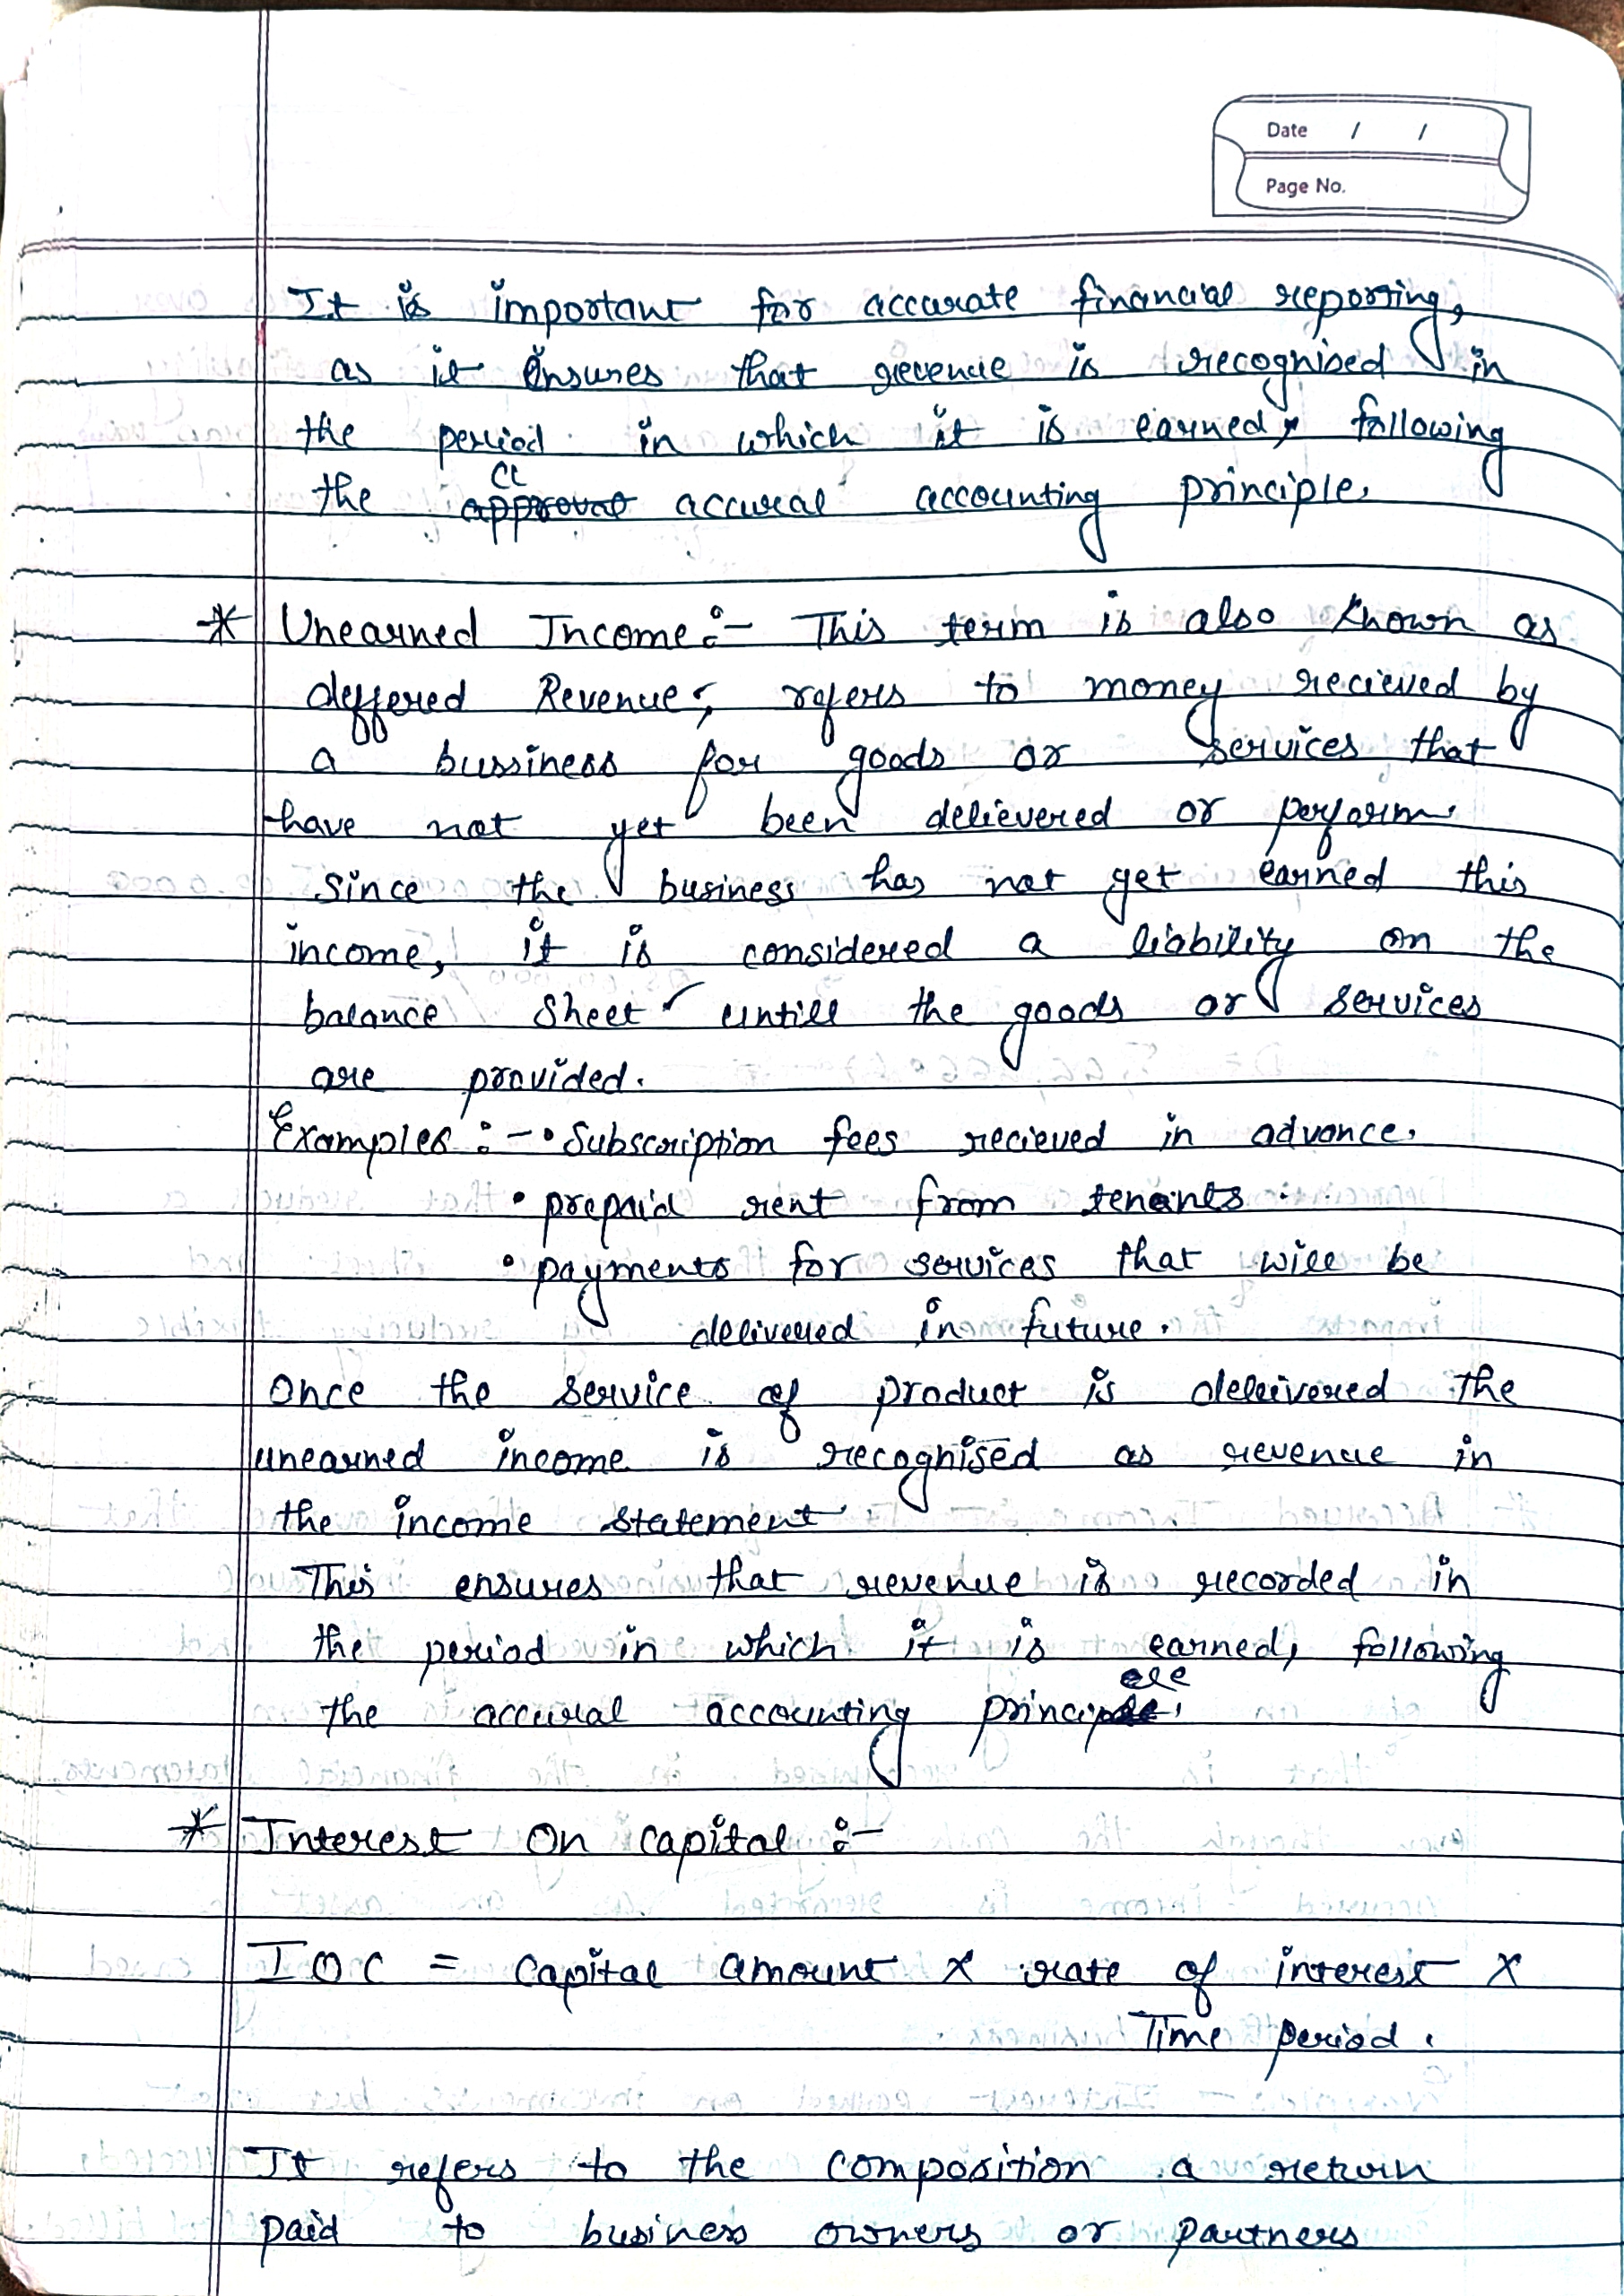 Date / /
Page No.
It is important for accurate financial reporting,
as it ensures that revenue is recognised in
the period in which it is earned, following
the accural accounting principle.
* Unearned Income :- This term is also known as
deffered Revenue, refers to money recieved by
a bussiness for goods or services that
have not yet been delievered or perform.
Since the business has not yet earned this
income, it is considered a liability on the
balance Sheet untill the goods or services
are provided.
Examples :- • Subscription fees recieved in advance.
• prepaid rent from tenants.
• payments for services that will be
delivered in future.
Once the service of product is deleivered the
unearned income is recognised as revenue in
the income statement.
This ensures that revenue is recorded in
the period in which it is earned, following
the accural accounting principle.
* Interest On capital :-
IOC = Capital amount x rate of interest x
Time period.
It refers to the composition a return
paid to business owners or partners